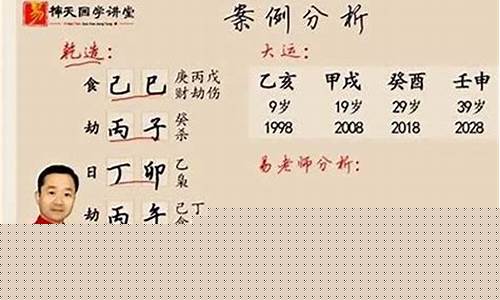 易 梓天国学讲堂
案例分析
乾造：
食 己 巳 庚丙戊
财劫伤
劫 丙 子 癸
杀
日 丁 卯 乙
枭
劫 丙 午 己丁
大运：
乙亥 甲戌 癸酉 壬申
9岁 19岁 29岁 39岁
1998 2008 2018 2028
易老师分析：